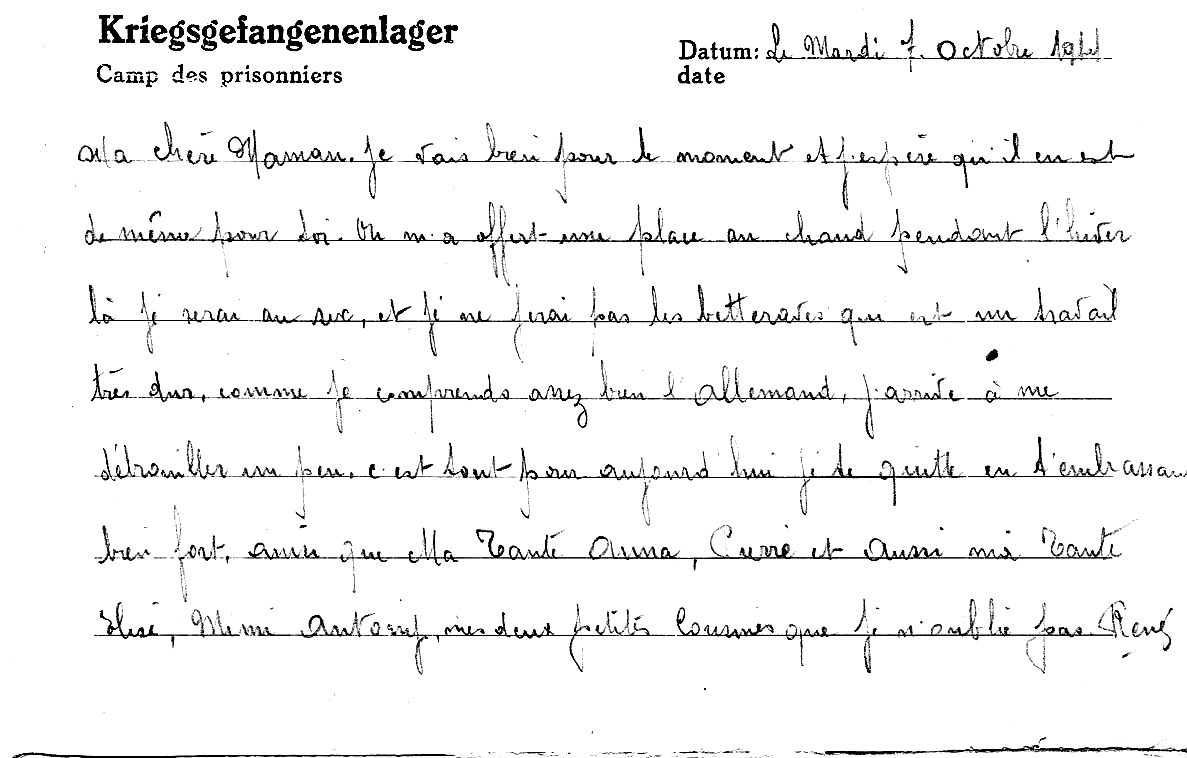 Kriegsgefangenenlager
Camp des prisonniers
Datum: Le Mardi 7. Octobre 1941
date
Ma chère Maman. Je vais bien pour le moment et j'espère qu'il en est
de même pour toi. On m'a offert une place au chaud pendant l'hiver
là je serai au sec, et je ne ferai pas les betteraves qui est un travail
très dur, comme je comprends assez bien l'Allemand, j'arrive à me
débrouiller un peu. c'est tout pour aujourd'hui je te quitte en t'embrassan
bien fort, ainsi que Ma Tante Anna, Pierre et Aussi ma Tante
Elise, Mimi mes deux petites Cousines que je n'oublie pas. René